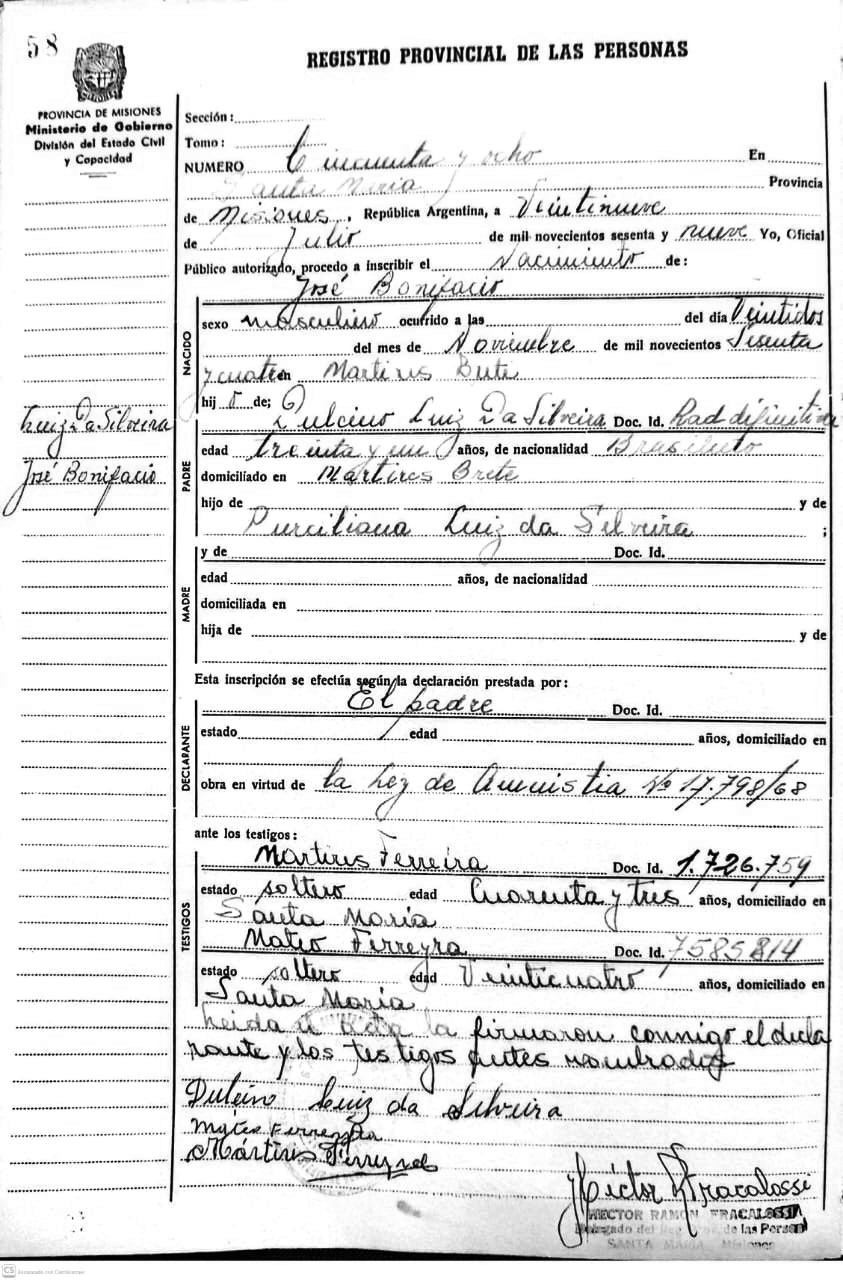 58
REGISTRO PROVINCIAL DE LAS PERSONAS
PROVINCIA DE MISIONES
Ministerio de Gobierno
División del Estado Civil
y Capacidad
Luiz Da Silveira
José Bonifacio
Sección:
Tomo:
NUMERO Cincuenta y ocho En
Santa María Provincia
de Misiones, República Argentina, a Veintinueve
de Julio de mil novecientos sesenta y nueve Yo, Oficial
Público autorizado, procedo a inscribir el Nacimiento de:
José Bonifacio
NACIDO
sexo masculino ocurrido a las del día Veintidos
del mes de Noviembre de mil novecientos Sesenta
y cuatro en Martires
hijo de;
PADRE
Dulcino Luiz Da Silveira Doc. Id. Rad difinitiva
edad treinta y un años, de nacionalidad Brasileño
domiciliado en Martires
hijo de y de
Purciliana Luiz da Silveira ;
MADRE
y de Doc. Id.
edad años, de nacionalidad
domiciliada en
hija de y de
Esta inscripción se efectúa según la declaración prestada por:
DECLARANTE
El padre Doc. Id.
estado edad años, domiciliado en
obra en virtud de la Ley de Amnistia Nº 17.798/68
ante los testigos:
TESTIGOS
Martires Ferreira Doc. Id. 1.726.759
estado soltero edad Cuarenta y tres años, domiciliado en
Santa María
Mateo Ferreyra Doc. Id.
estado soltero edad Veinticuatro años, domiciliado en
Santa María
Leida el acta la firmaron conmigo el decla
rante y los testigos antes nombrados
Dulcino Luiz da Silveira
Mateo Ferreyra
Mártires Ferreyra
Héctor R Fracalossi
HECTOR RAMON FRACALOSSI
Delegado del Reg. Prov. de las Person
SANTA MARIA Misiones
CS Escaneado con CamScanner